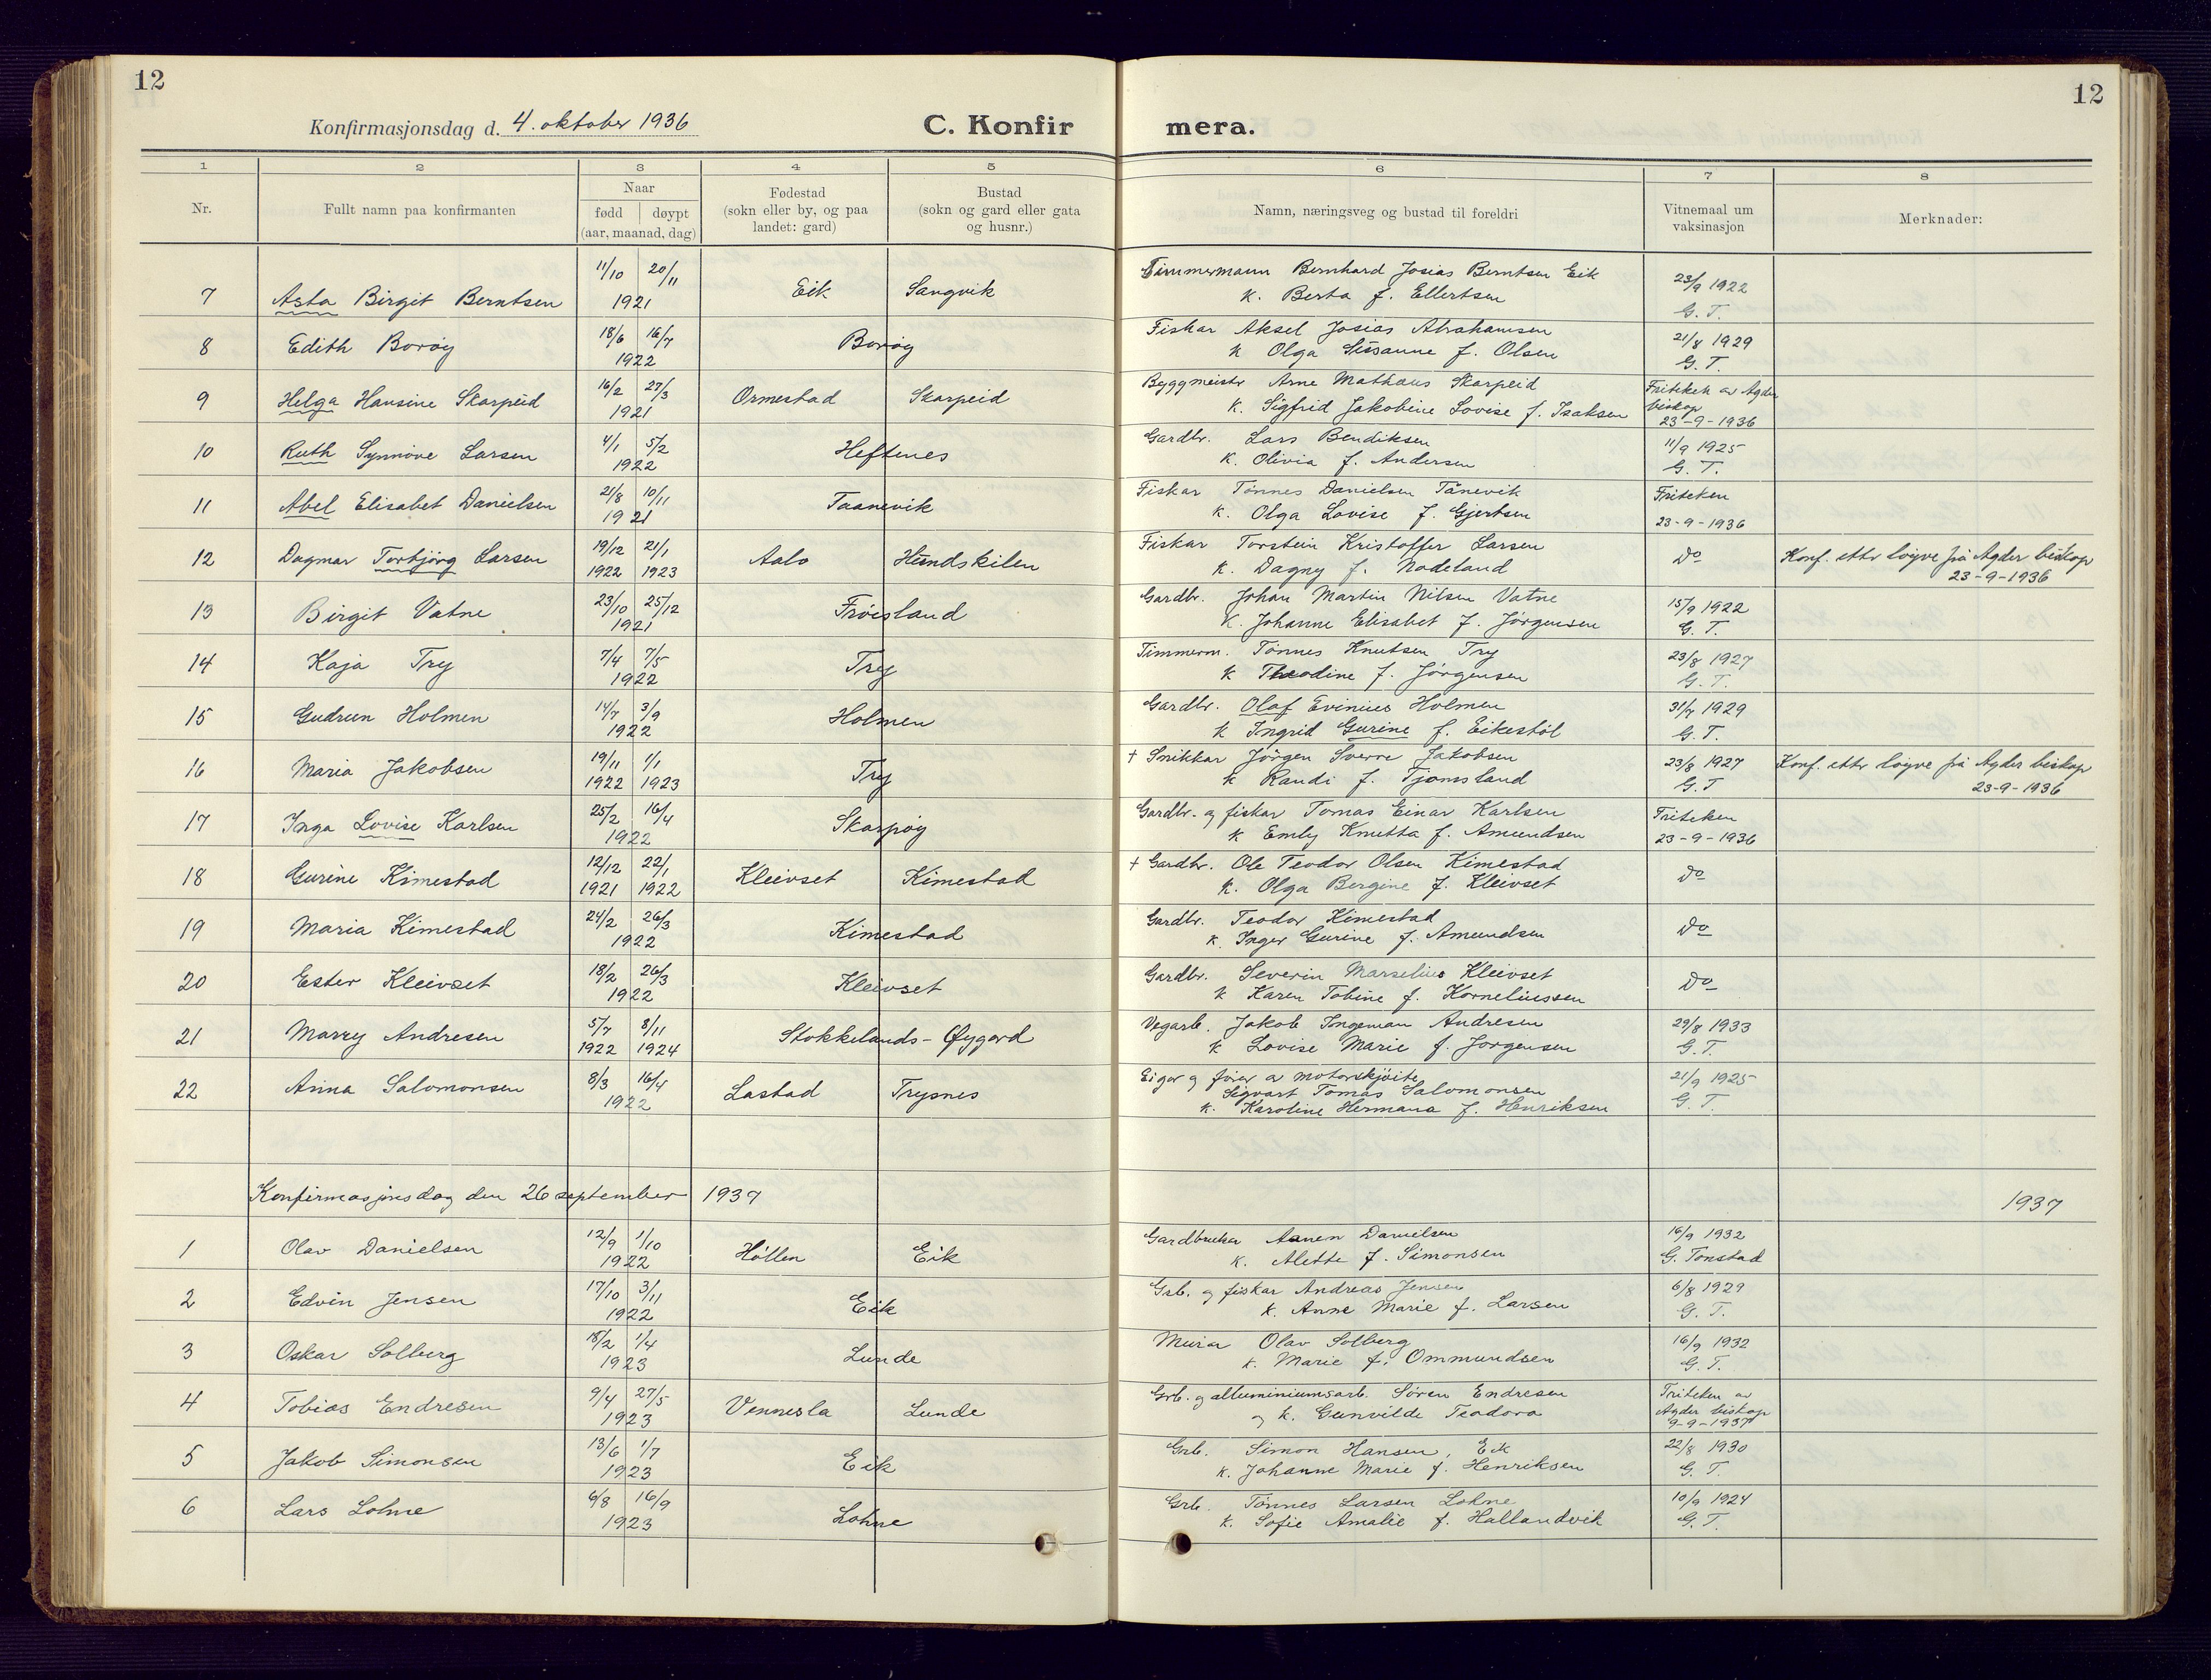 12
12
Konfirmasjonsdag d. 4. oktober 1936
C. Konfir mera.
1 2 3 4 5 6 7 8
Nr.
Fullt namn paa konfirmanten
Naar
fødd døypt
(aar, maanad, dag)
Fødestad
(sokn eller by, og paa
landet: gard)
Bustad
(sokn og gard eller gata
og husnr.)
Namn, næringsveg og bustad til foreldri
Vitnemaal um
vaksinasjon
Merknader:
7 Asta Birgit Berntsen 11/10 20/11 1921 Eik Sangvik Timmermann Bernhard Josias Berntsen Eik
k. Berta f. Ellertsen 23/9 1922 G. T.
8 Edith Borøy 18/6 16/7 1922 Borøy Fiskar Aksel Josias Abrahamsen
k Olga Susanne f. Olsen 21/8 1929 G. T.
9 Helga Hansine Skarpeid 16/2 27/3 1921 Ormestad Skarpeid Byggmeistr Arne Mathæus Skarpeid
k. Sigfrid Jakobine Lovise f. Isaksen Friteken av Agder biskop 23-9-1936
10 Ruth Synnøve Larsen 4/1 5/2 1922 Heftenes Gardbr. Lars Bendiksen
k. Olivia f. Andersen 11/9 1925 G. T.
11 Abel Elisabet Danielsen 21/8 10/11 1921 Taanevik Fiskar Tønnes Danielsen Tånevik
k. Olga Lovise f. Gjertsen Friteken 23-9-1936
12 Dagmar Torbjørg Larsen 19/12 21/1 1922 1923 Aalo Hundskilen Fiskar Torstein Kristoffer Larsen
k. Dagny f. Nodeland Do Konf. etter løyve frå Agder biskop
23-9-1936
13 Birgit Vatne 23/10 25/12 1921 Frøisland Gardbr. Johan Martin Nilsen Vatne
k. Johanne Elisabet f. Jørgensen 15/9 1922 G. T.
14 Kaja Try 7/4 7/5 1922 Try Timmerm. Tønnes Knutsen Try
k Theodine f. Jørgensen 23/8 1927 G. T.
15 Gudrun Holmen 14/7 3/9 1922 Holmen Gardbr. Olaf Evinius Holmen
k Ingrid Gurine f. Eikestøl 31/7 1929 G. T.
16 Maria Jakobsen 19/11 1/1 1922 1923 Try + Snikkar Jörgen Sverre Jakobsen
k Randi f. Tjomsland 23/8 1927 G. T Konf. etter løyve frå Agder biskop
23-9-1936
17 Inga Lovise Karlsen 25/2 16/4 1922 Skarpøy Gardbr. og fiskar Tomas Einar Karlsen
k Emly Knutta f. Amundsen Friteken 23-9-1936
18 Gurine Kimestad 12/12 22/1 1921 1922 Kleivset Kimestad + Gardbr. Ole Teodor Olsen Kimestad
k. Olga Bergine f. Kleivset Do
19 Maria Kimestad 24/2 26/3 1922 Kimestad Gardbr. Teodor Kimestad
k. Inger Gurine f. Amundsen Do
20 Ester Kleivset 18/2 26/3 1922 Kleivset Gardbr. Severin Marselius Kleivset
k Karen Tobine f. Korneliussen Do
21 Marry Andresen 5/7 8/11 1922 1924 Stokkelands-Øygard Vegarb. Jakob Ingeman Andresen
k Lovise Marie f. Jørgensen 29/8 1933 G. T.
22 Anna Salomonsen 8/3 16/4 1922 Lastad Trysnes Eigar og førar av motorskjøite
Sigvart Tomas Salomonsen
k. Karoline Hermana f. Henriksen 21/9 1925 G. T.
Konfirmasjonsdag den 26 september 1937 1937
1 Olav Danielsen 12/9 1/10 1922 Høllen Eik Gardbrukar Aanen Danielsen
k. Alette f. Simonsen 16/9 1932 G. Tonstad
2 Edvin Jensen 17/10 3/11 1922 Eik Grb. og fiskar Andreas Jensen
k. Anne Marie f. Larsen 6/8 1929 G. T.
3 Oskar Solberg 18/2 1/4 1923 Lunde Murar Olav Solberg
k. Marie f. Ommundsen 16/9 1932 G. T.
4 Tobias Endresen 9/4 27/5 1923 Vennesla Lunde Grb. og alluminiumsarb. Søren Endresen
og k. Gunvilde Teodora Friteken av Agder biskop 9-9-1937
5 Jakob Simonsen 13/6 1/7 1923 Eik Grb. Simon Hansen, Eik
k. Johanne Marie f. Henriksen 22/8 1930 G. T.
6 Lars Lohne 6/8 16/9 1923 Lohne Grb. Tønnes Larsen Lohne
k. Sofie Amalie f. Hallandvik 10/9 1924 G. T.